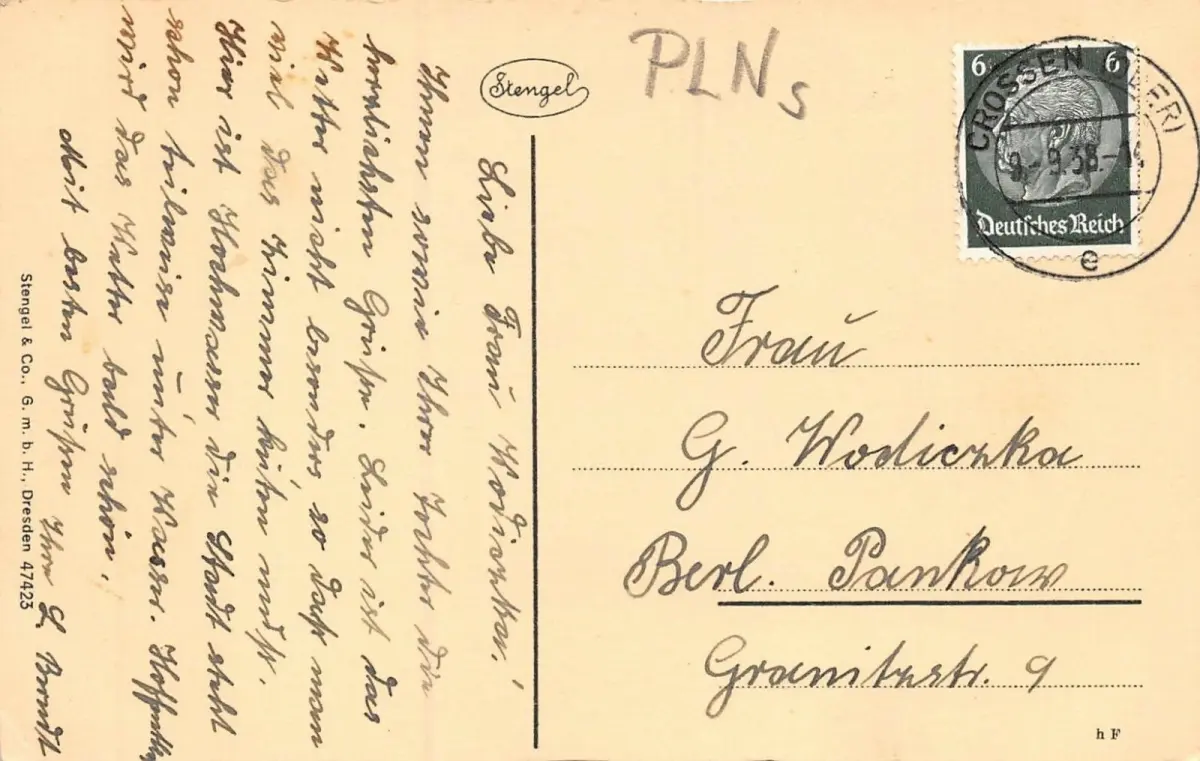 Stengel
PLNs
6 6
CROSSEN (ODER)
9.-9.38.-
Deutsches Reich
e
Liebe Frau Wodiczka!
Ihnen sowie Ihrer Tochter die
herzlichsten Grüße. Leider ist das
Wetter nicht besonders, so daß man
viel das Zimmer hüten muß.
Hier ist Hochwasser die Stadt steht
schon teilweise unter Wasser. Hoffentlich
wird das Wetter bald schön.
Mit besten Grüßen Ihre L. Brandt
Frau
G. Wodiczka
Berl. Pankow
Granitzstr. 9
Stengel & Co., G. m. b. H., Dresden 47423
h F